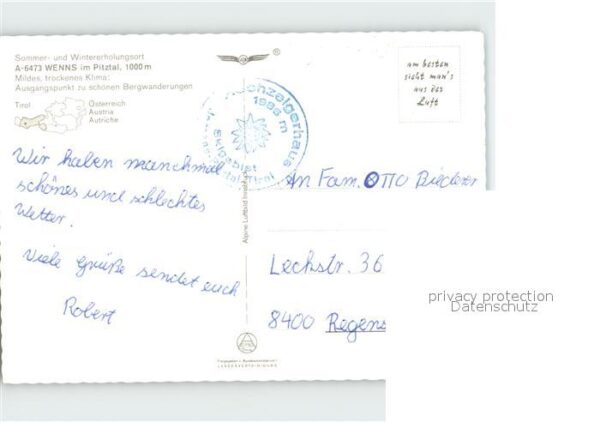 Sommer- und Wintererholungsort
A-6473 WENNS im Pitztal, 1000 m
Mildes, trockenes Klima;
Ausgangspunkt zu schönen Bergwanderungen
Tirol
Österreich
Austria
Autriche
Wir haben manchmal
schönes und schlechtes
Wetter.
Viele Grüße sendet euch
Robert
®
Hochzeigerhaus
1986 m
Skigebiet
Tirol
Alpine Luftbild
am besten
sieht man's
aus der
Luft
An Fam. OTTO Biederer
Lechstr. 36
8400 Regens
privacy protection
Datenschutz